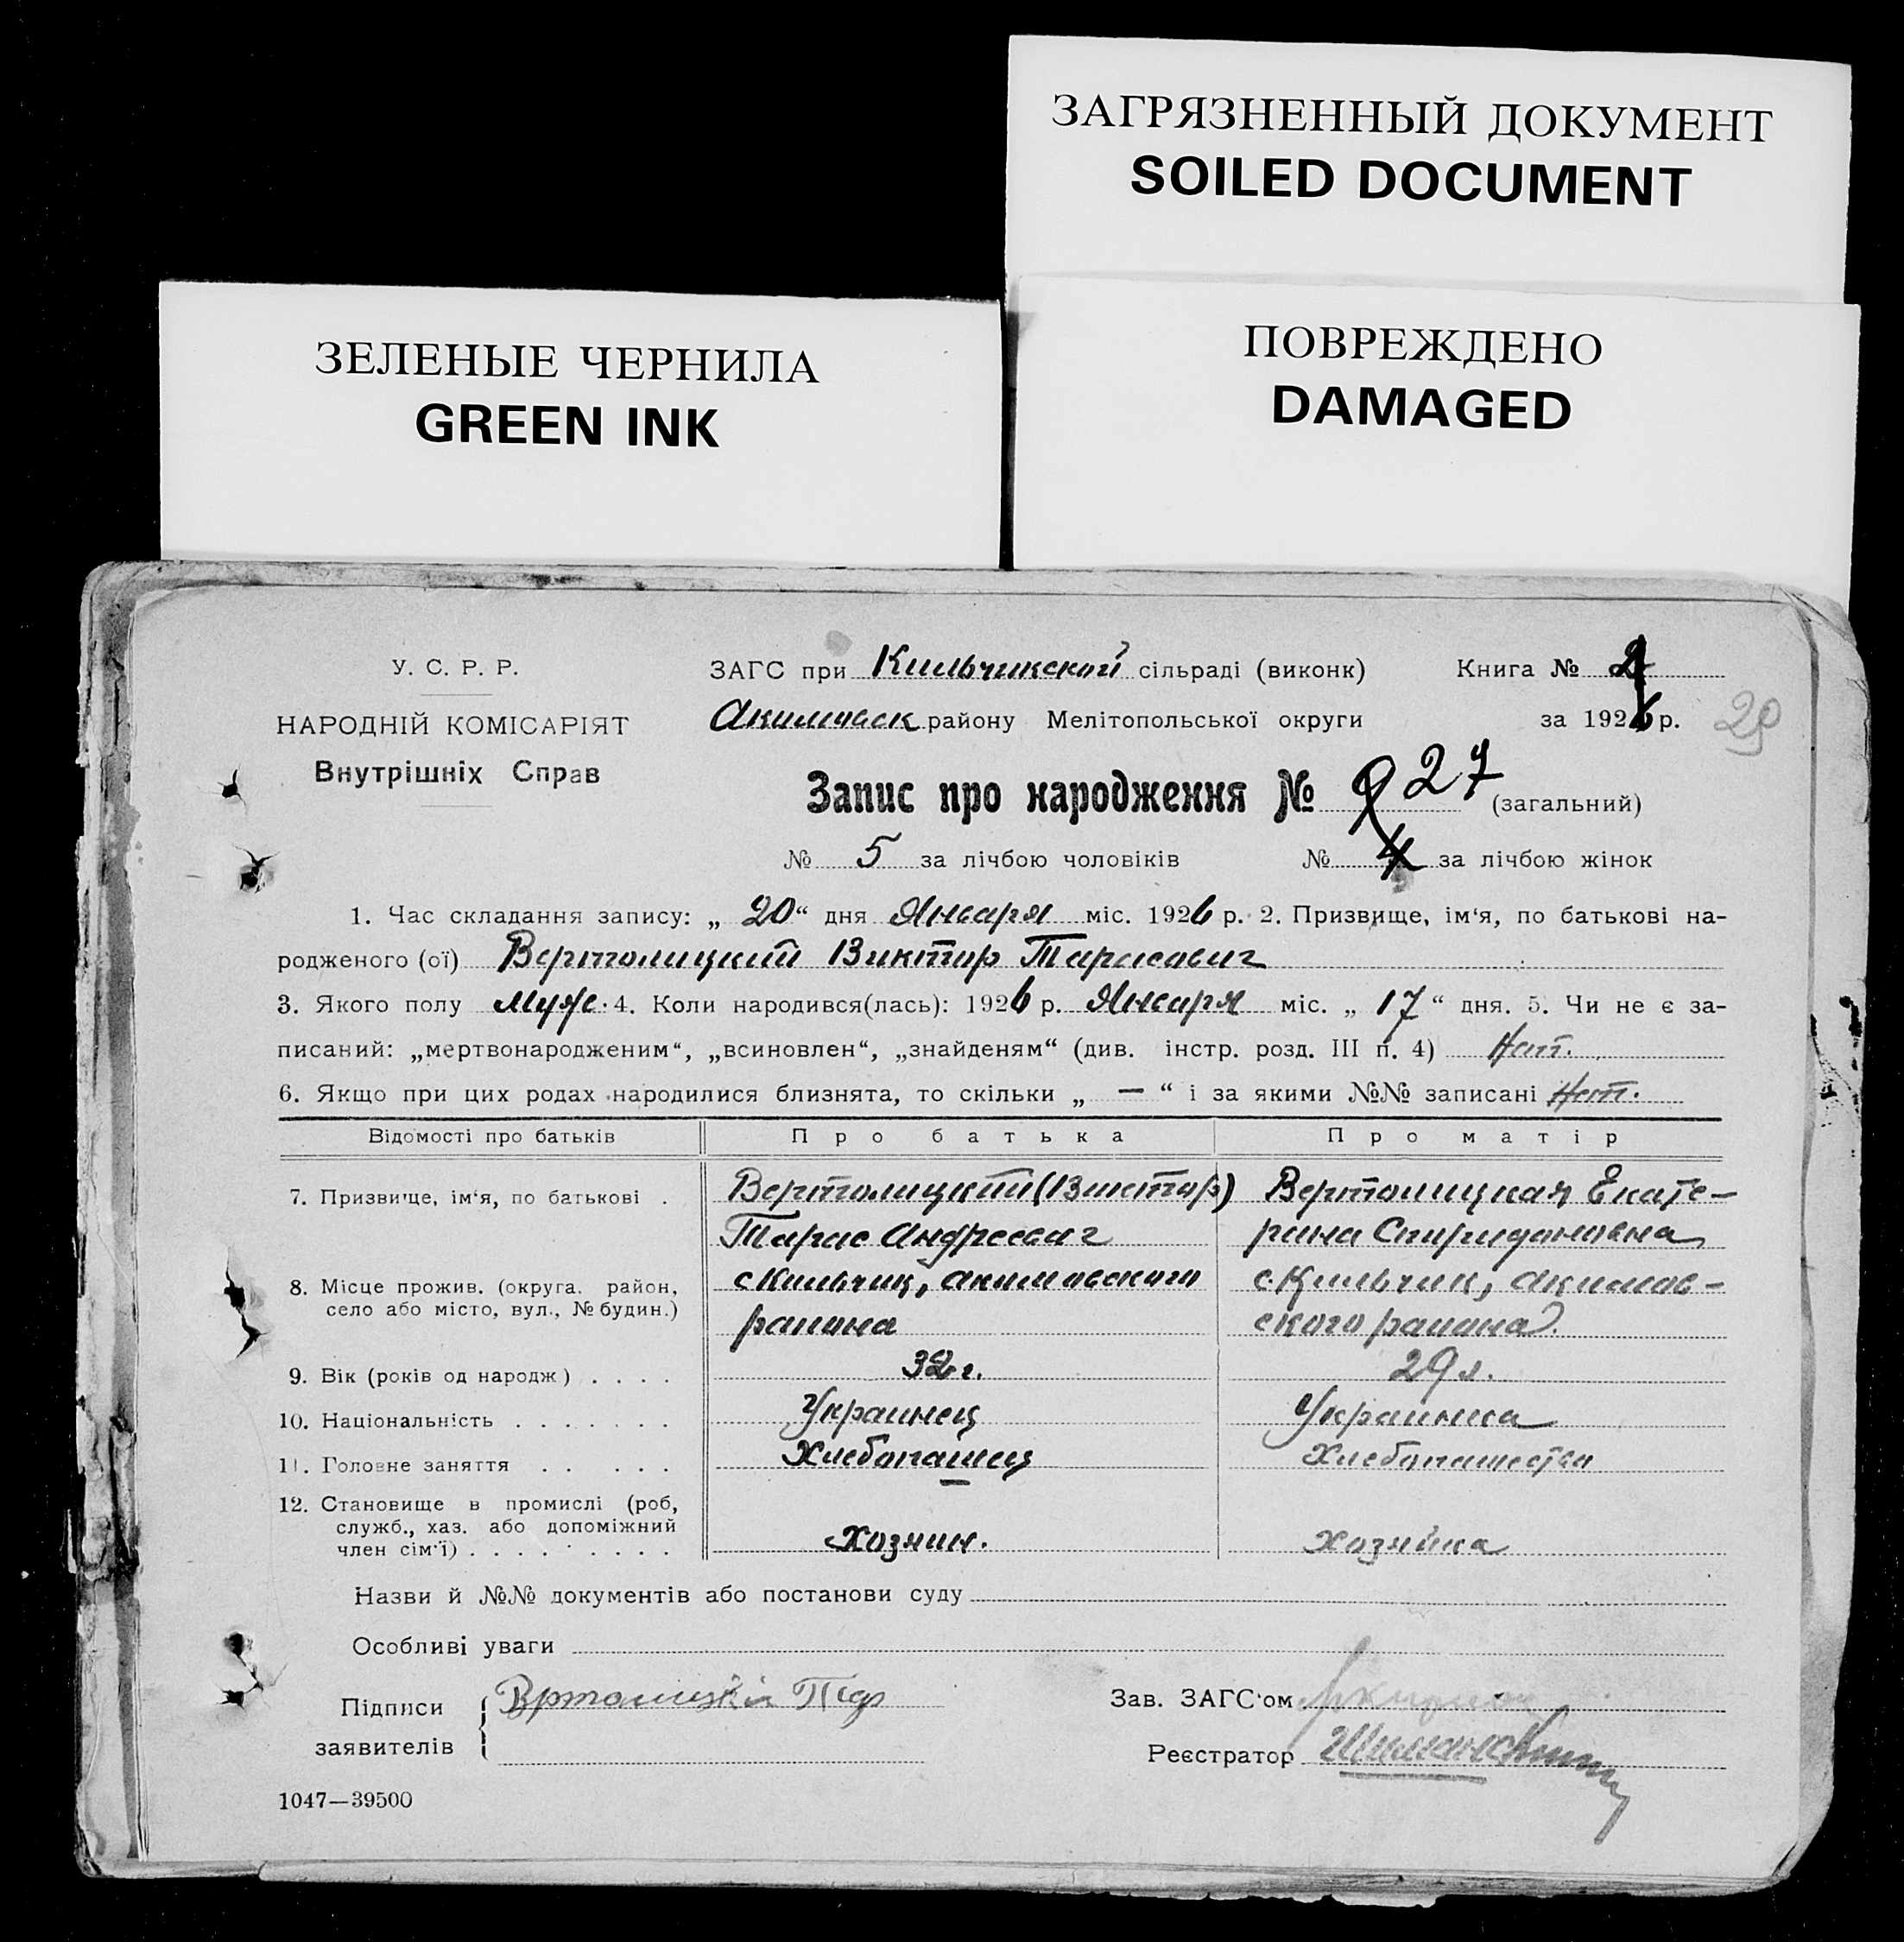 ЗАГРЯЗНЕННЫЙ ДОКУМЕНТ
SOILED DOCUMENT
ЗЕЛЕНЫЕ ЧЕРНИЛА
GREEN INK
ПОВРЕЖДЕНО
DAMAGED
У. С. Р. Р.
НАРОДНІЙ КОМІСАРІЯТ
Внутрішніх Справ
ЗАГС при Кильчикской сільраді (виконк) Книга №
Акимовск району Мелітопольської округи за 1926 р. 29
Запис про народження № 27 (загальний)
№ 5 за лічбою чоловіків № за лічбою жінок
1. Час складання запису: „ 20 “ дня Января міс. 1926 р. 2. Призвище, ім‘я, по батькові на-
родженого (ої) Вертолицкий Виктор Тарасович
3. Якого полу муж. 4. Коли народився(лась): 1926 р. Января міс. „ 17 “ дня. 5. Чи не є за-
писаний: „мертвонародженим“, „всиновлен“, „знайденям“ (див. інстр. розд. III п. 4) Нет.
6. Якщо при цих родах народилися близнята, то скільки „ — “ і за якими №№ записані Нет.
Відомості про батьків Про батька Про матір
7. Призвище, ім‘я, по батькові . Вертолицкий (Виктор) Вертолицкая Екате-
Тарас Андреевич рина Спиридоновна
8. Місце прожив. (округа. район, с Кильчик, Акимовского с. Кильчик, Акимов-
село або місто, вул., № будин.) раиона ского раиона.
9. Вік (років од народж) . . . . 32 г. 29 л.
10. Національність . . . . . . . Украинец Украинка
11. Головне заняття . . . . . Хлебопашец Хлебопашество
12. Становище в промислі (роб,
служб., хаз. або допоміжний
член сім‘ї) . . . . . . . . . Хозяин. Хозяйка
Назви й №№ документів або постанови суду
Особливі уваги
Підписи
заявителів
Зав. ЗАГС‘ом
Реєстратор
1047—39500